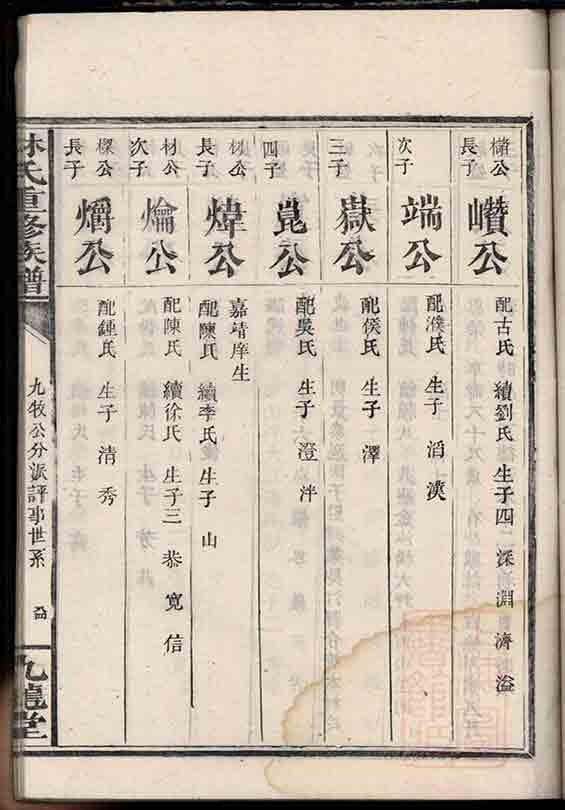 櫹公長子 巑公 配古氏 續劉氏 生子四 深 淵 濟 溢
次子 端公 配濮氏 生子 滔 漢
三子 嶽公 配侯氏 生子 澤
四子 崑公 配吳氏 生子 澄 泮
材公長子 煒公 嘉靖庠生 配陳氏 續李氏 生子 山
材公次子 爚公 配陳氏 續徐氏 生子三 恭 寬 信
樑公長子 爝公 配鍾氏 生子 清 秀
林氏重修族譜
九牧公分派評事世系
九龍堂